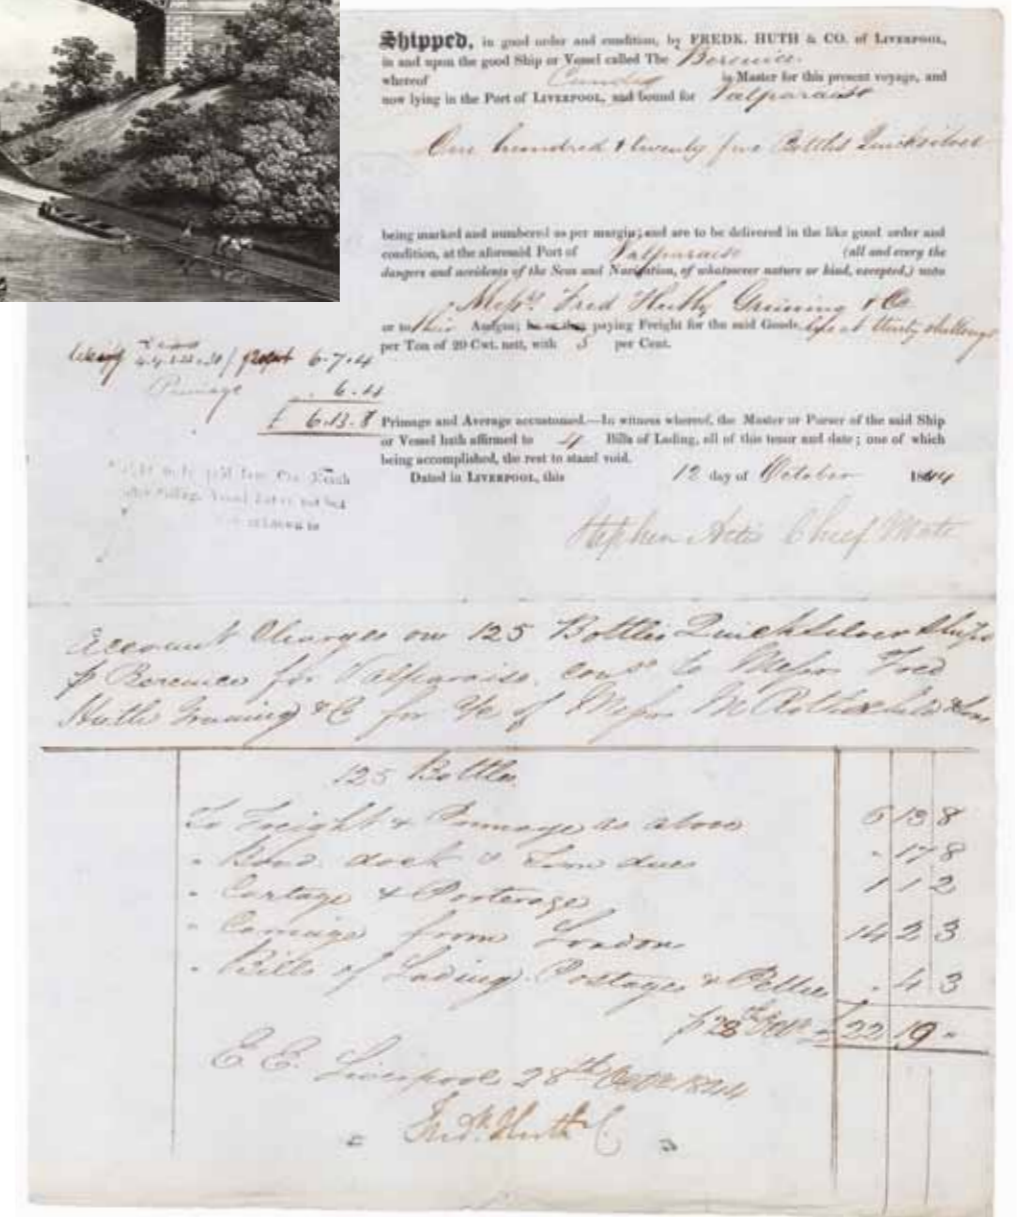 Shipped, in good order and condition, by FREDK. HUTH & CO. of LIVERPOOL,
in and upon the good Ship or Vessel called The Berenice
whereof is Master for this present voyage, and
now lying in the Port of LIVERPOOL, and bound for Valparaiso
One hundred & twenty five Bottles Quicksilver
being marked and numbered as per margin; and are to be delivered in the like good order and
condition, at the aforesaid Port of Valparaiso (all and every the
dangers and accidents of the Seas and Navigation, of whatsoever nature or kind, excepted,) unto
Messrs. Fred Huth, Gruning & Co
or to their Assigns; paying Freight for the said Goods, at thirty shillings
per Ton of 20 Cwt. nett, with 5 per Cent.
6.7.4
Primage 6.4
£ 6.13.8
Primage and Average accustomed.—In witness whereof, the Master or Purser of the said Ship
or Vessel hath affirmed to 4 Bills of Lading, all of this tenor and date; one of which
being accomplished, the rest to stand void.
Dated in LIVERPOOL, this 12 day of October 1844
Stephen Chief Mate
Account Charges on 125 Bottles Quicksilver
p Berenice for Valparaiso, to Messrs Fred
Huth Gruning & C for of Messrs Rothschild & Sons
125 Bottles
To Freight & Primage as above 6 13 8
" dock & Town dues " 17 8
" Cartage & Porterage 1 1 2
" Carriage from London 14 2 3
" Bills of Lading Postages & Petties " 4 3
£ 22 19 "
E. E. Liverpool 28th Octr 1844
Fredk Huth & C